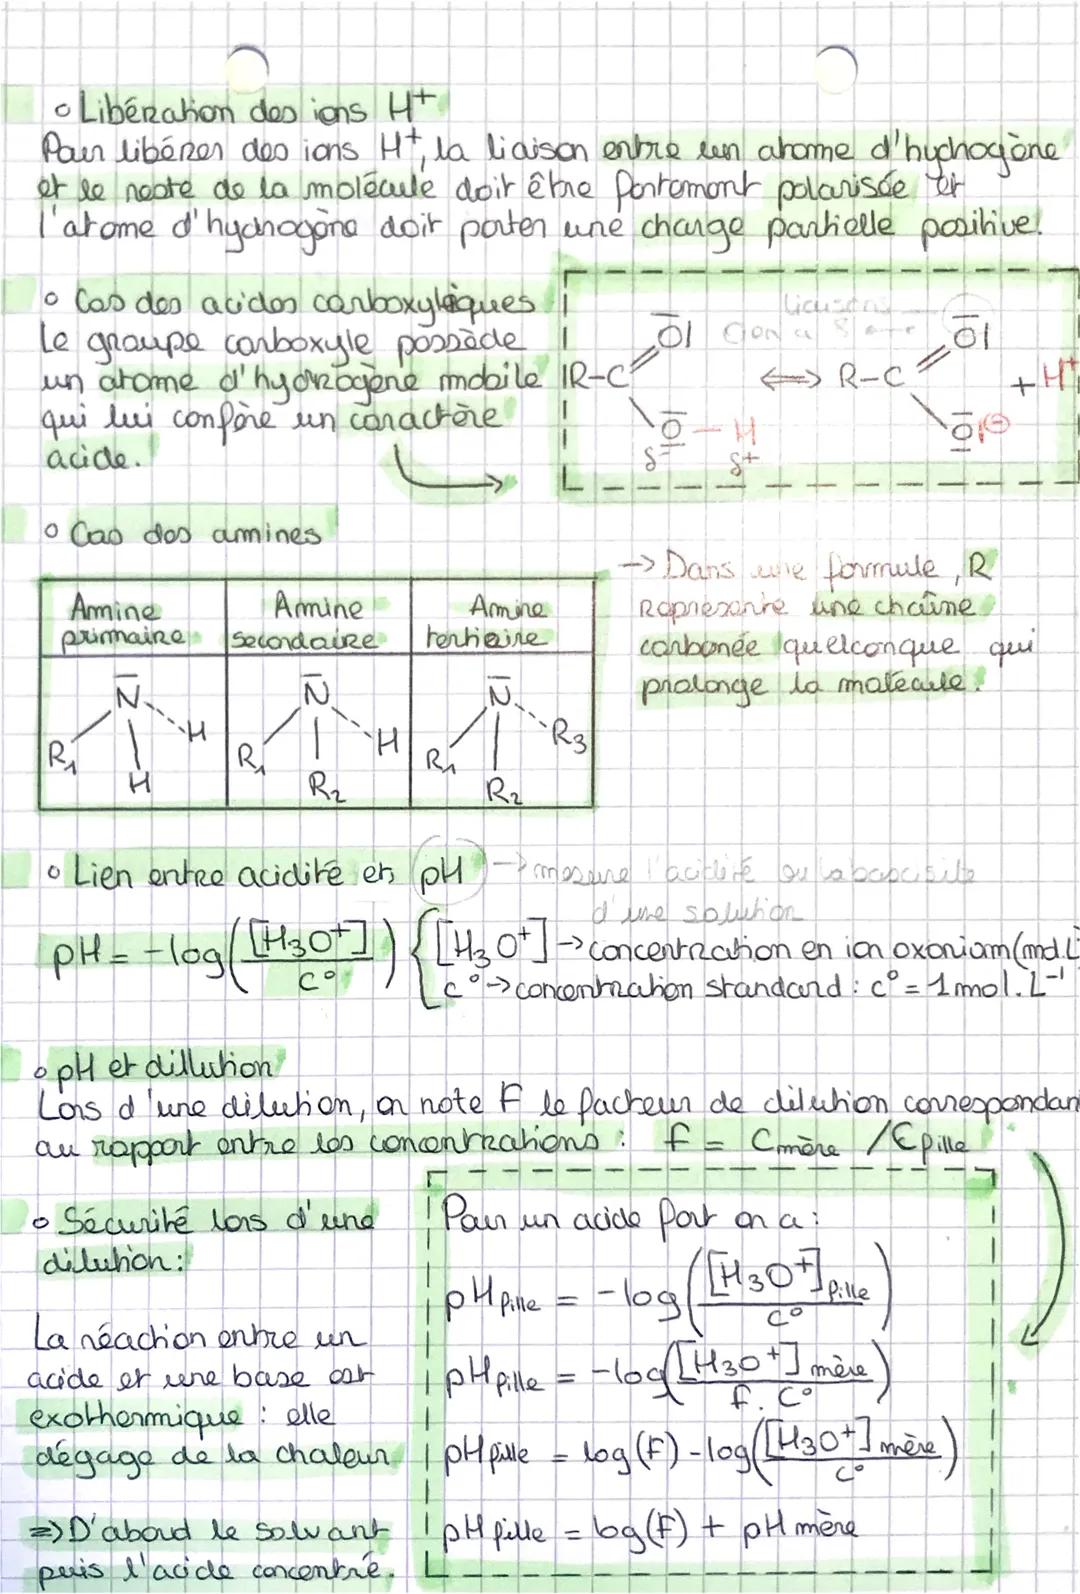 o Libération des ions H+
Pour libérer des ions H+, la liaison entre un atome d'hydrogène
et le reste de la molécule doit être fortement polarisée et
l'atome d'hydrogène doit porter une charge partielle positive.
o Cas des acides carboxyliques
Le groupe carboxyle possède
un atome d'hydrogène mobile
qui lui confère un caractère
acide.
liaisons
O| O|
R-C ⟺ R-C + H+
O - H O|⊖
δ- δ+
o Cas des amines
Amine primaire
Amine secondaire
Amine tertiaire
N H R1 H
N H R1 R2
N R3 R1 R2
-> Dans une formule, R
représente une chaîne
carbonée quelconque qui
prolonge la molécule.
o Lien entre acidité et pH -> mesure l'acidité ou la bascisité
d'une solution
pH = -log([H3O+]/c°) { [H3O+] -> concentration en ion oxonium (mol.L
c° -> concentration standard : c° = 1 mol.L-1
o pH et dillution
Lors d'une dilution, on note F le facteur de dilution correspondan
au rapport entre les concentrations : f = Cmère / Cfille
o Sécurité lors d'une
dilution :
La réaction entre un
acide et une base est
exothermique : elle
dégage de la chaleur
=> D'abord le solvant
puis l'acide concentré.
Pour un acide fort on a :
pH fille = -log([H3O+]fille / c°)
pH fille = -log([H3O+]mère / f.c°)
pH fille = log(F) - log([H3O+]mère / c°)
pH fille = log(F) + pH mère